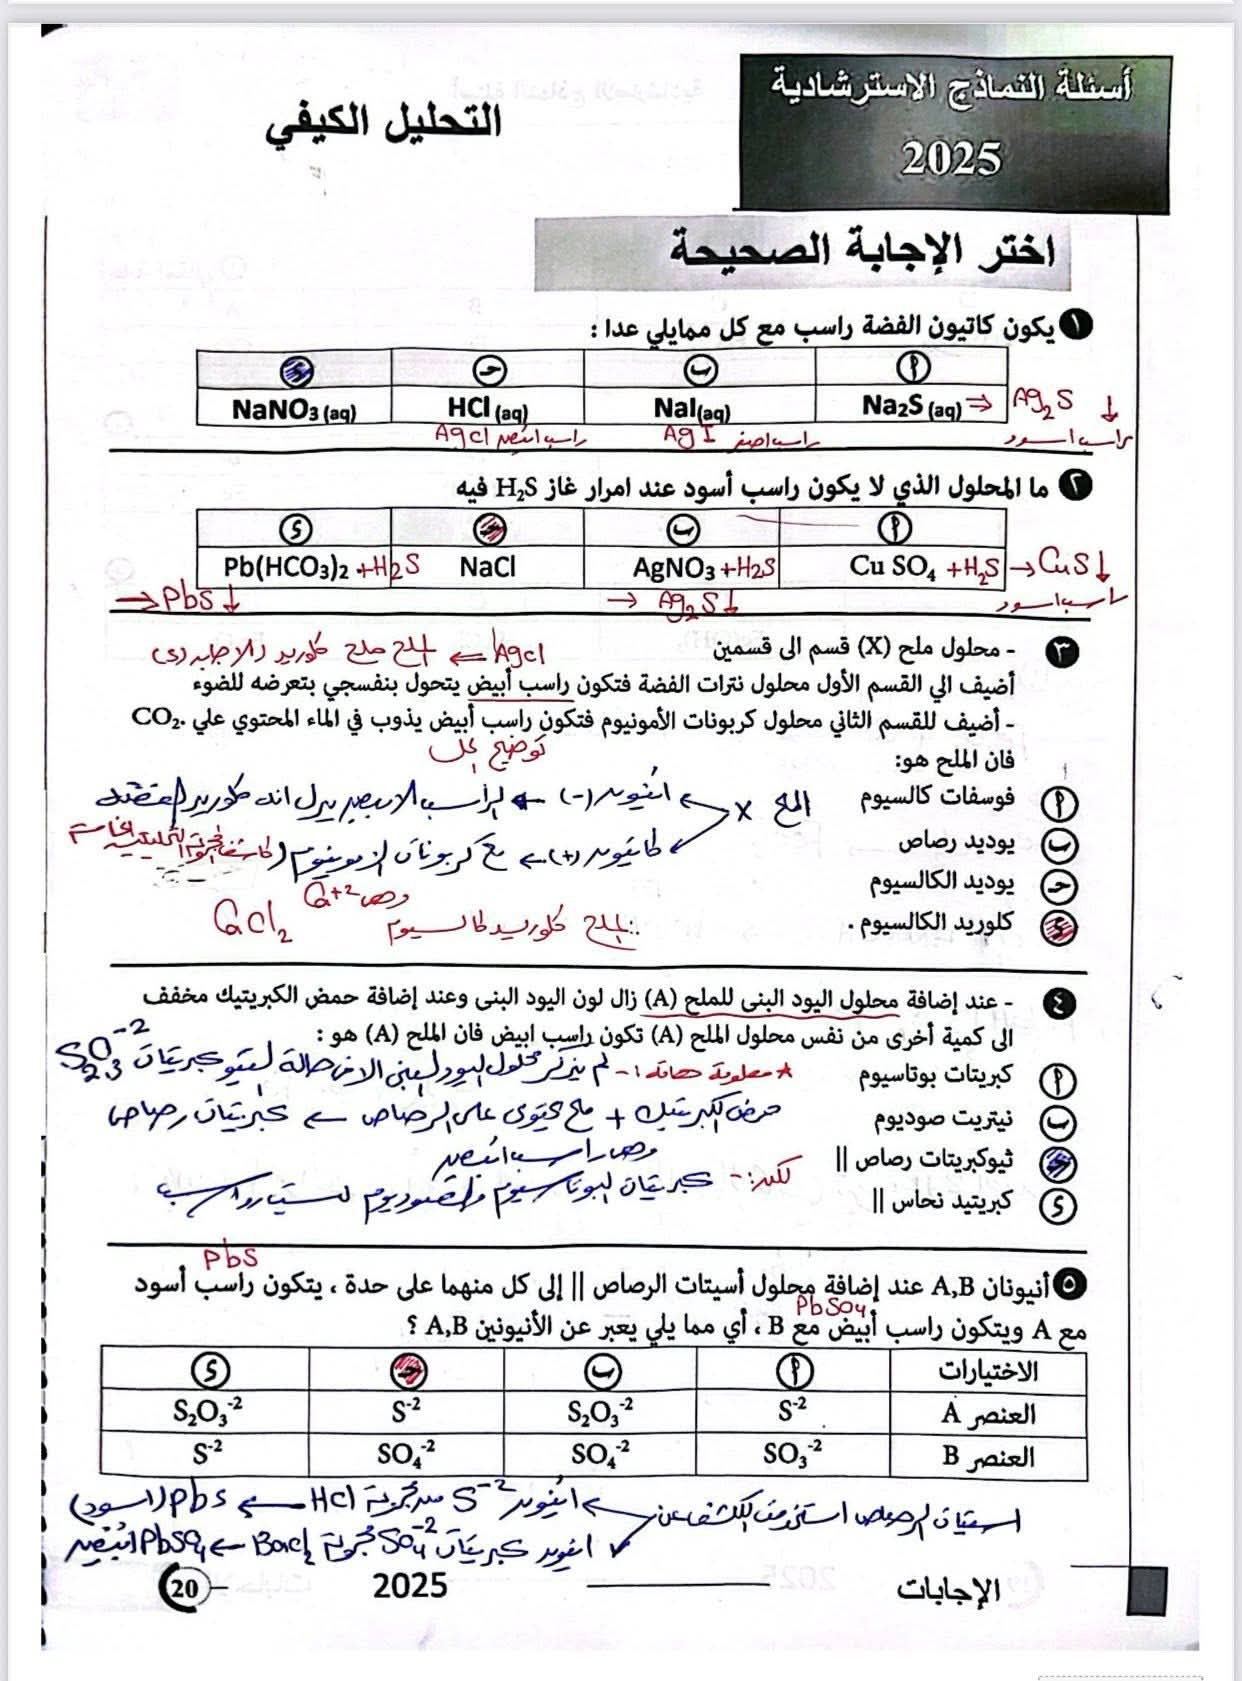 أسئلة النماذج الاسترشادية
2025
التحليل الكيفي
اختر الإجابة الصحيحة
١ يكون كاتيون الفضة راسب مع كل ممايلي عدا :
أ ب جـ د
Na₂S (aq) → Ag₂S ↓ NaI(aq) HCl (aq) NaNO₃ (aq)
راسب اسود راسب اصفر AgI راسب ابيض AgCl
٢ ما المحلول الذي لا يكون راسب أسود عند امرار غاز H₂S فيه
أ ب جـ د
Cu SO₄ +H₂S → CuS↓ AgNO₃ +H2S NaCl Pb(HCO₃)₂ +H2S
راسب اسود → Ag₂S↓ → PbS↓
٣ - محلول ملح (X) قسم الى قسمين AgCl ← الملح ملح كلوريد (الاجابه د)
أضيف الي القسم الأول محلول نترات الفضة فتكون راسب أبيض يتحول بنفسجي بتعرضه للضوء
- أضيف للقسم الثاني محلول كربونات الأمونيوم فتكون راسب أبيض يذوب في الماء المحتوي علي CO₂.
فان الملح هو: توضيح الحل
أ فوسفات كالسيوم الملح X انيون (-) ← الراسب الابيض يدل انه كلوريد الفضة
ب يوديد رصاص كاتيون (+) ← مع كربونات الامونيوم (كاشف المجموعة التحليلية الخامسة
جـ يوديد الكالسيوم وهو Ca⁺²
د كلوريد الكالسيوم . ∴ الملح كلوريد كالسيوم CaCl₂
٤ - عند إضافة محلول اليود البنى للملح (A) زال لون اليود البنى وعند إضافة حمض الكبريتيك مخفف
الى كمية أخرى من نفس محلول الملح (A) تكون راسب ابيض فان الملح (A) هو :
أ كبريتات بوتاسيوم * معلومة هامة :- لم يذكر محلول اليود البنى الا فى حالة الثيوكبريتات S₂O₃⁻²
ب نيتريت صوديوم حمض الكبريتيك + ملح يحتوى على الرصاص ← كبريتات رصاص
جـ ثيوكبريتات رصاص || وهو راسب ابيض
د كبريتيد نحاس || لكن :- كبريتات البوتاسيوم والصوديوم
PbS
٥ أنيونان A,B عند إضافة محلول أسيتات الرصاص || إلى كل منهما على حدة ، يتكون راسب أسود
PbSO₄
مع A ويتكون راسب أبيض مع B ، أي مما يلي يعبر عن الأنيونين A,B ؟
الاختيارات أ ب جـ د
العنصر A S⁻² S₂O₃⁻² S⁻² S₂O₃⁻²
العنصر B SO₃⁻² SO₄⁻² SO₄⁻² S⁻²
اسيتات الرصاص استخدمت للكشف عن انيون S⁻² من مجموعة HCl ← PbS (اسود)
انيون كبريتات SO₄⁻² مجموعة BaCl₂ ← PbSO₄ ابيض
الإجابات 2025 20